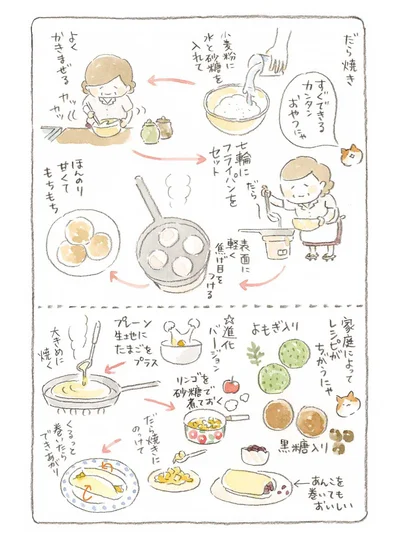 だら焼き
すぐできる
カンタン
おやつにゃ
小麦粉に
水と砂糖を
入れて
よく
かきまぜる
カッ
カッ
七輪に
フライパンを
セット
だら
表面に
軽く
焦げ目を
つける
ほんのり
甘くて
もちもち
家庭によって
レシピが
ちがうにゃ
よもぎ入り
黒糖入り
☆進化
バージョン
プレーン
生地に
たまごを
プラス
大きめに
焼く
リンゴを
砂糖で
煮ておく
だら焼きに
のっけて
くるっと
巻いたら
できあがり
あんこを
巻いても
おいしい